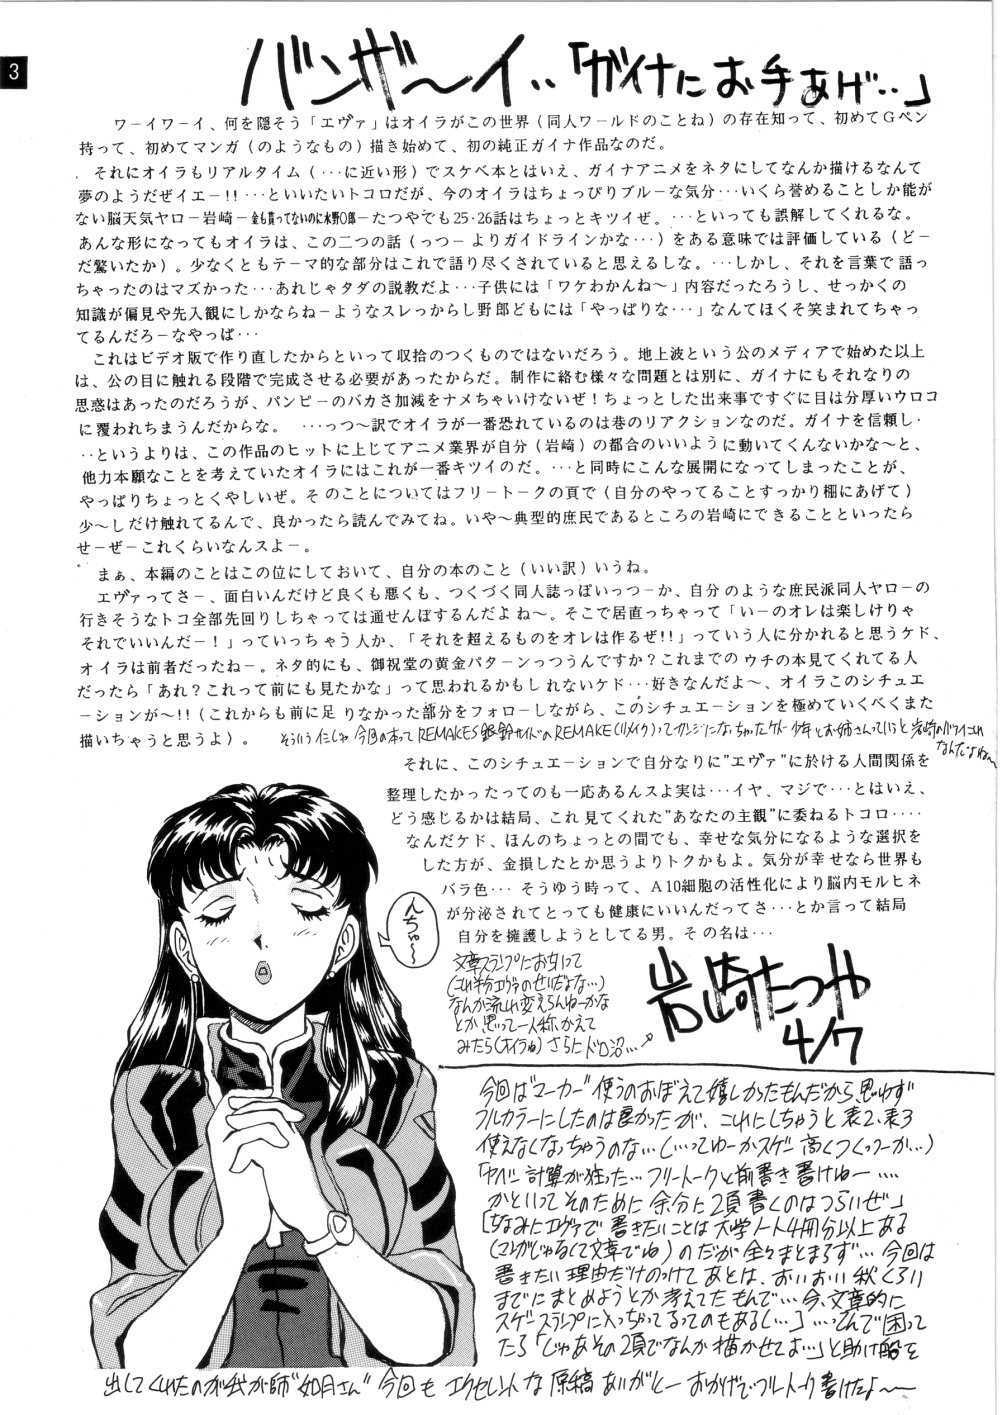 3
バンザ〜イ‥「ガイナにお手あげ‥」
ワーイワーイ、何を隠そう「エヴァ」はオイラがこの世界(同人ワールドのことね)の存在知って、初めてGペン
持って、初めてマンガ(のようなもの)描き始めて、初の純正ガイナ作品なのだ。
それにオイラもリアルタイム(‥‥に近い形)でスケベ本とはいえ、ガイナアニメをネタにしてなんか描けるなんて
夢のようだぜイエー!!‥‥といいたいトコロだが、今のオイラはちょっぴりブルーな気分‥‥いくら誉めることしか能が
ない脳天気ヤロー岩崎ー金も貰ってないのに水野〇郎ーたつやでも25・26話はちょっとキツイぜ。‥‥といっても誤解してくれるな。
あんな形になってもオイラは、この二つの話(っつーよりガイドラインかな‥‥)をある意味では評価している(どー
だ驚いたか)。少なくともテーマ的な部分はこれで語り尽くされていると思えるしな。‥‥しかし、それを言葉で語っ
ちゃったのはマズかった‥‥あれじゃタダの説教だよ‥‥子供には「ワケわかんね〜」内容だったろうし、せっかくの
知識が偏見や先入観にしかならねーようなスレっからし野郎どもには「やっぱりな‥‥」なんてほくそ笑まれてちゃっ
てるんだろーなやっぱ‥‥
これはビデオ版で作り直したからといって収拾のつくものではないだろう。地上波という公のメディアで始めた以上
は、公の目に触れる段階で完成させる必要があったからだ。制作に絡む様々な問題とは別に、ガイナにもそれなりの
思惑はあったのだろうが、パンピーのバカさ加減をナメちゃいけないぜ!ちょっとした出来事ですぐに目は分厚いウロコ
に覆われちまうんだからな。 ‥‥っつ〜訳でオイラが一番恐れているのは巷のリアクションなのだ。ガイナを信頼し‥
‥というよりは、この作品のヒットに上じてアニメ業界が自分(岩崎)の都合のいいように動いてくんないかな〜と、
他力本願なことを考えていたオイラにはこれが一番キツイのだ。‥‥と同時にこんな展開になってしまったことが、
やっぱりちょっとくやしいぜ。そのことについてはフリートークの頁で(自分のやってることすっかり棚にあげて)
少〜しだけ触れてるんで、良かったら読んでみてね。いや〜典型的庶民であるところの岩崎にできることといったら
せーぜーこれくらいなんスよー。
まぁ、本編のことはこの位にしておいて、自分の本のこと(いい訳)いうね。
エヴァってさー、面白いんだけど良くも悪くも、つくづく同人誌っぽいっつーか、自分のような庶民派同人ヤローの
行きそうなトコ全部先回りしちゃっては通せんぼするんだよね〜。そこで居直っちゃって「いーのオレは楽しけりゃ
それでいいんだー!」っていっちゃう人か、「それを超えるものをオレは作るぜ!!」っていう人に分かれると思うケド、
オイラは前者だったねー。ネタ的にも、御祝堂の黄金パターンっつうんですか?これまでのウチの本見てくれてる人
だったら「あれ?これって前にも見たかな」って思われるかもしれないケド‥‥好きなんだよ〜、オイラこのシチュエ
ーションが〜!!(これからも前に足りなかった部分をフォローしながら、このシチュエーションを極めていくべくまた
描いちゃうと思うよ)。 そういうイミじゃ今回の本ってREMAKES銀鈴サイドのREMAKE(リメイク)ってカンジになっちゃったケド少年とお姉さんっていうと岩崎のバヤイこれ
なんだよね〜
それに、このシチュエーションで自分なりに"エヴァ"に於ける人間関係を
整理したかったってのも一応あるんスよ実は‥‥イヤ、マジで‥‥とはいえ、
どう感じるかは結局、これ見てくれた"あなたの主観"に委ねるトコロ‥‥
なんだケド、ほんのちょっとの間でも、幸せな気分になるような選択を
した方が、金損したとか思うよりトクかもよ。気分が幸せなら世界も
バラ色‥‥ そうゆう時って、A10細胞の活性化により脳内モルヒネ
が分泌されてとっても健康にいいんだってさ‥‥とか言って結局
自分を擁護しようとしてる男。その名は‥‥
岩崎たつや
4/7
んちゅ〜
文章スランプにおちいって
(これ半分エヴァのせいだよな…)
なんか流れ変えらんねーかな
とか思って一人称かえて
みたら(オイラね)さらにドロ沼…
今回は"マーカー"使うのおぼえて嬉しかったもんだから思わず
フルカラーにしたのは良かったが、これにしちゃうと表2、表3
使えなくなっちゃうのな…(…ってゆーかスゲー高くつくっつーか…)
「ヤベー計算が狂った…フリートークと前書き書けねー‥‥
かといってそのために余分に2頁書くのはつらいぜ」
[ちなみにエヴァで書きたいことは大学ノート4冊分以上ある
(マンガじゃなくて文章でね)のだが全々まとまらず…今回は
書きたい理由だけのっけてあとは、おいおい秋くらい
までにまとめようとか考えてたもんで…今、文章的に
スゲースランプに入っちゃってるってのもあるし…]…ってんで困って
たら「じゃあその2頁でなんか描かせてよ…」と助け船を
出してくれたのが我が師"如月さん"今回もエクセレントな原稿ありがとーおかげでフリートーク書けたよ〜〜